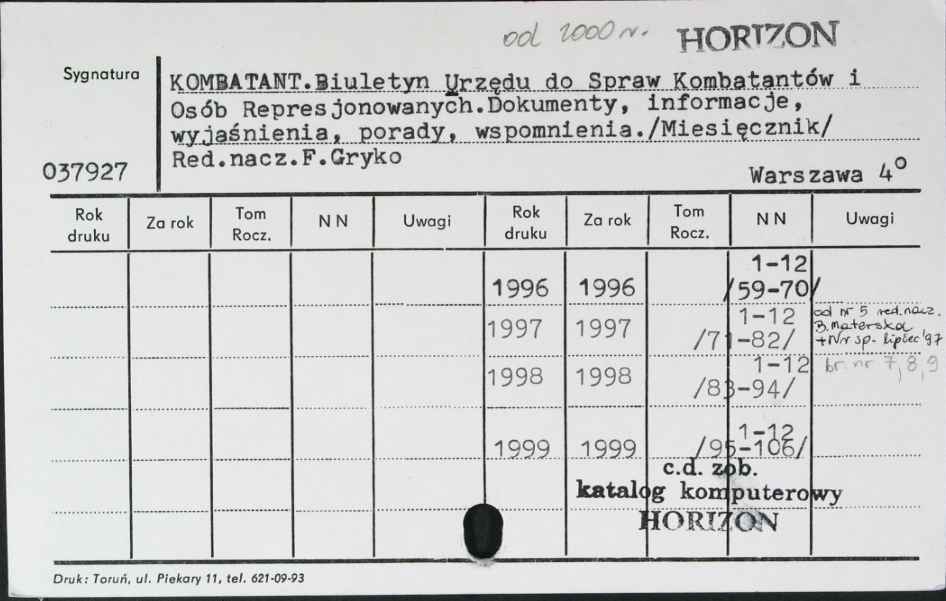 od 2000 r. HORIZON
Sygnatura
KOMBATANT.Biuletyn Urzędu do Spraw Kombatantów i
Osób Represjonowanych.Dokumenty, informacje,
wyjaśnienia, porady, wspomnienia./Miesięcznik/
Red.nacz.F.Gryko
037927
Warszawa 4°
Rok druku Za rok Tom Rocz. N N Uwagi Rok druku Za rok Tom Rocz. N N Uwagi
1-12
1996 1996 /59-70/
1-12
1997 1997 /71-82/
od nr 5 red.nacz.
B.Materska
+Nr sp. lipiec '97
1-12
1998 1998 /83-94/
br. nr 7,8,9
1-12
1999 1999 /95-106/
c.d. zob.
katalog komputerowy
HORIZON
Druk: Toruń, ul. Piekary 11, tel. 621-09-93